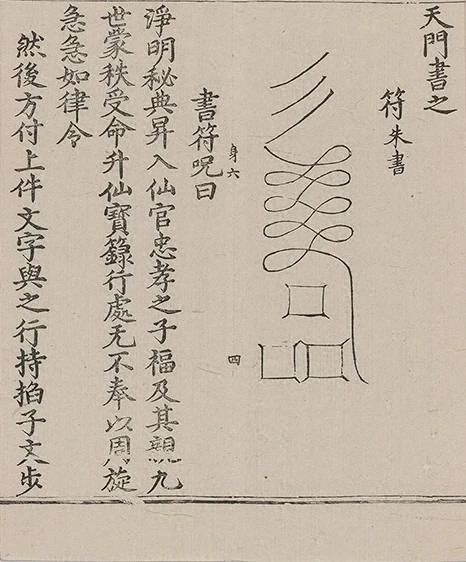 天門書之
符朱書
身六
四
書符呪曰
淨明秘典昇入仙官忠孝之子福及其親九
世蒙秩受命升仙寶籙行處无不奉以周旋
急急如律令
然後方付上件文字與之行持掐子文步